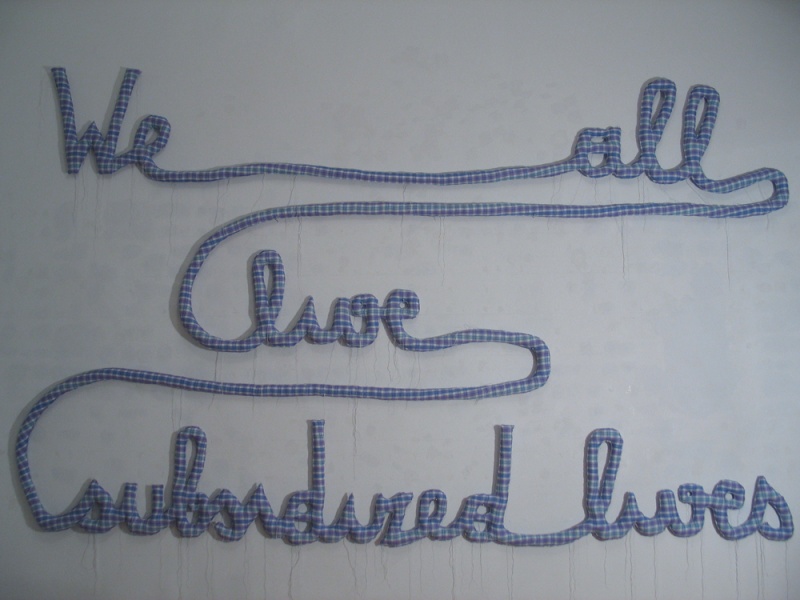 We all
live
subsidized lives